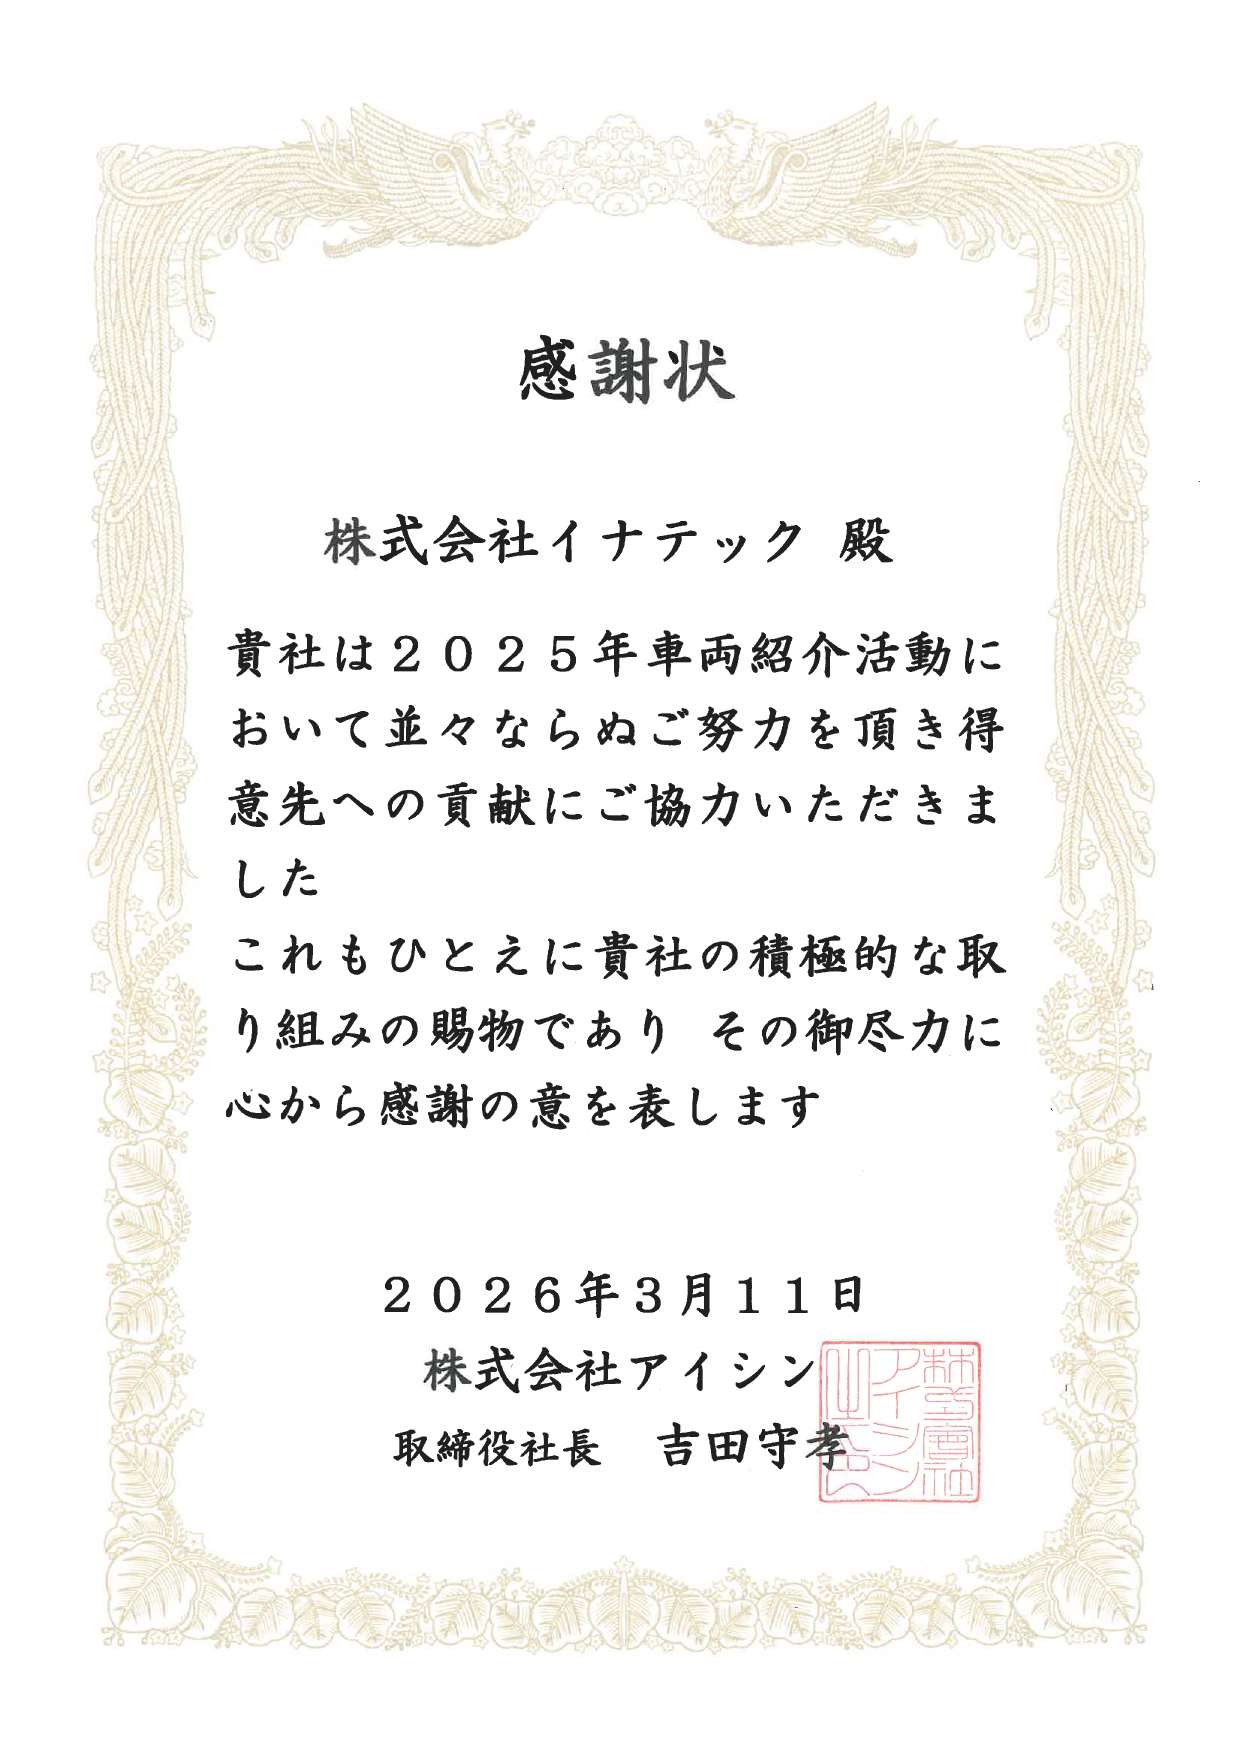 感謝状
株式会社イナテック 殿
貴社は２０２５年車両紹介活動に
おいて並々ならぬご努力を頂き得
意先への貢献にご協力いただきま
した
これもひとえに貴社の積極的な取
り組みの賜物であり その御尽力に
心から感謝の意を表します
２０２６年３月１１日
株式会社アイシン
取締役社長　吉田守孝